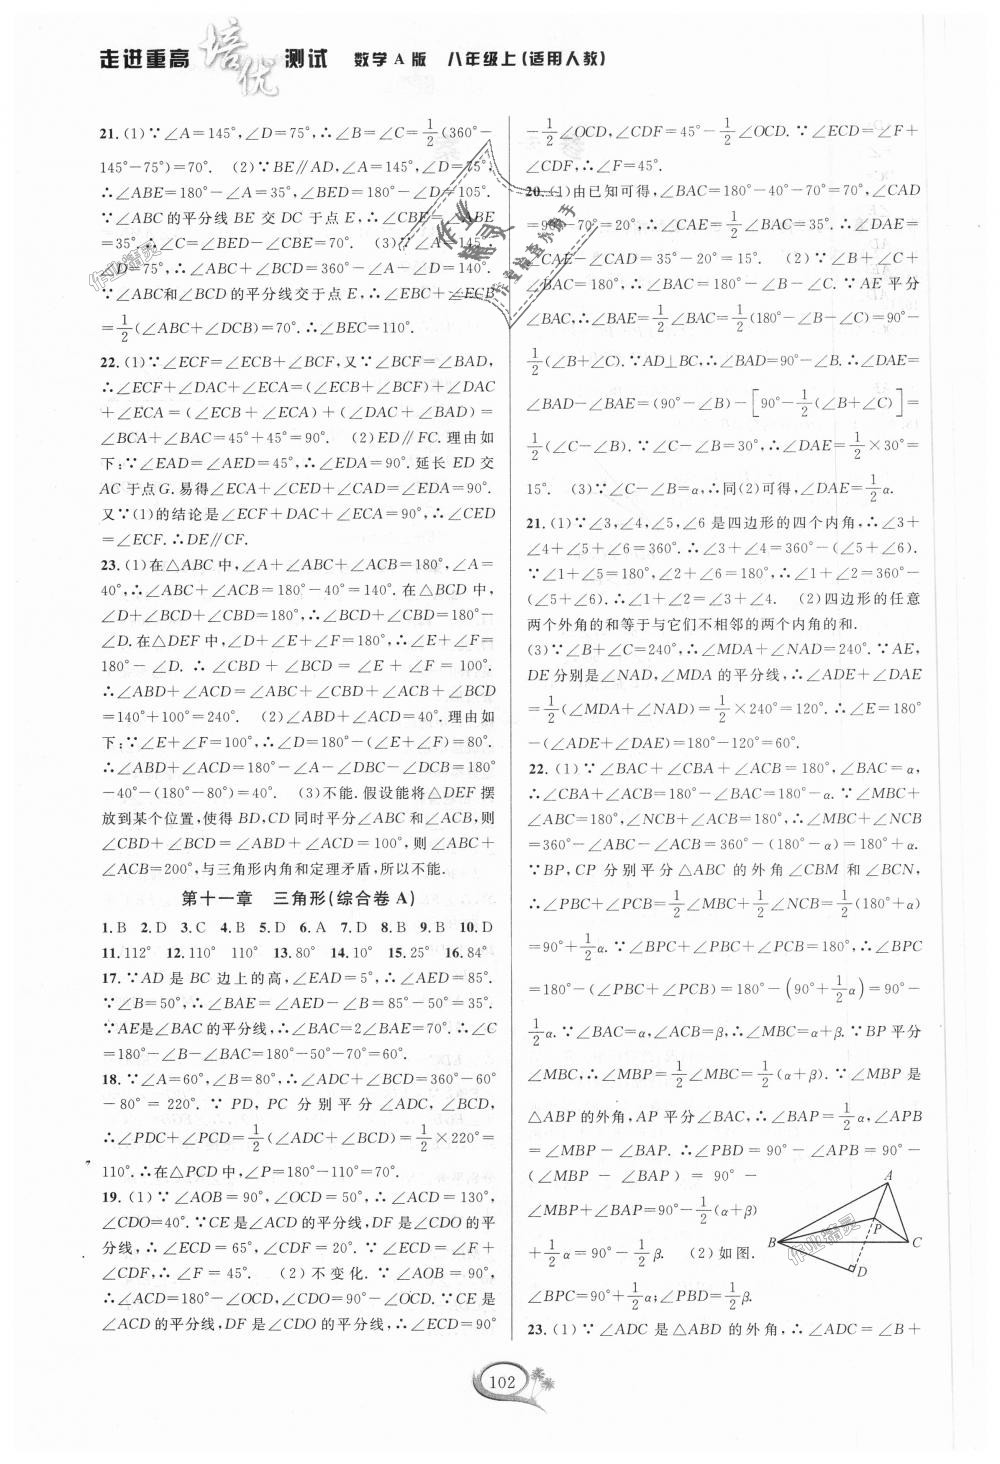 走进重高 培优 测试 数学A版 八年级上(适用人教)
21.(1)∵∠A=145°,∠D=75°,∴∠B=∠C=1/2(360°-
145°-75°)=70°. (2)∵BE∥AD,∠A=145°,∠D=75°,
∴∠ABE=180°-∠A=35°,∠BED=180°-∠D=105°.
∵∠ABC的平分线BE交DC于点E,∴∠CBE=∠ABE
=35°.∴∠C=∠BED-∠CBE=70°. (3)∵∠A=145°,
∠D=75°,∴∠ABC+∠BCD=360°-∠A-∠D=140°.
∵∠ABC和∠BCD的平分线交于点E,∴∠EBC+∠ECB
=1/2(∠ABC+∠DCB)=70°.∴∠BEC=110°.
22.(1)∵∠ECF=∠ECB+∠BCF,又∵∠BCF=∠BAD,
∴∠ECF+∠DAC+∠ECA=(∠ECB+∠BCF)+∠DAC
+∠ECA=(∠ECB+∠ECA)+(∠DAC+∠BAD)=
∠BCA+∠BAC=45°+45°=90°. (2)ED∥FC.理由如
下:∵∠EAD=∠AED=45°,∴∠EDA=90°.延长ED交
AC于点G.易得∠ECA+∠CED+∠CAD=∠EDA=90°.
又∵(1)的结论是∠ECF+DAC+∠ECA=90°,∴∠CED
=∠ECF.∴DE∥CF.
23.(1)在△ABC中,∠A+∠ABC+∠ACB=180°,∠A=
40°,∴∠ABC+∠ACB=180°-40°=140°.在△BCD中,
∠D+∠BCD+∠CBD=180°,∴∠BCD+∠CBD=180°-
∠D.在△DEF中,∠D+∠E+∠F=180°,∴∠E+∠F=
180°-∠D.∴∠CBD+∠BCD=∠E+∠F=100°.
∴∠ABD+∠ACD=∠ABC+∠CBD+∠ACB+∠BCD
=140°+100°=240°. (2)∠ABD+∠ACD=40°.理由如
下:∵∠E+∠F=100°,∴∠D=180°-(∠E+∠F)=80°.
∴∠ABD+∠ACD=180°-∠A-∠DBC-∠DCB=180°
-40°-(180°-80°)=40°. (3)不能.假设能将△DEF摆
放到某个位置,使得BD,CD同时平分∠ABC和∠ACB,则
∠CBD+∠BCD=∠ABD+∠ACD=100°,则∠ABC+
∠ACB=200°,与三角形内角和定理矛盾,所以不能.
第十一章 三角形(综合卷A)
1.B 2.D 3.C 4.B 5.D 6.A 7.D 8.B 9.B 10.D
11.112° 12.110° 110° 13.80° 14.10° 15.25° 16.84°
17.∵AD是BC边上的高,∠EAD=5°,∴∠AED=85°.
∵∠B=50°,∴∠BAE=∠AED-∠B=85°-50°=35°.
∵AE是∠BAC的平分线,∴∠BAC=2∠BAE=70°.∴∠C
=180°-∠B-∠BAC=180°-50°-70°=60°.
18.∵∠A=60°,∠B=80°,∴∠ADC+∠BCD=360°-60°
-80°=220°.∵PD,PC分别平分∠ADC,∠BCD,
∴∠PDC+∠PCD=1/2(∠ADC+∠BCD)=1/2×220°=
110°.∴在△PCD中,∠P=180°-110°=70°.
19.(1)∵∠AOB=90°,∠OCD=50°,∴∠ACD=130°,
∠CDO=40°.∵CE是∠ACD的平分线,DF是∠CDO的平
分线,∴∠ECD=65°,∠CDF=20°.∵∠ECD=∠F+
∠CDF,∴∠F=45°. (2)不变化.∵∠AOB=90°,
∴∠ACD=180°-∠OCD,∠CDO=90°-∠OCD.∵CE是
∠ACD的平分线,DF是∠CDO的平分线,∴∠ECD=90°
-1/2∠OCD,∠CDF=45°-1/2∠OCD.∵∠ECD=∠F+
∠CDF,∴∠F=45°.
20.(1)由已知可得,∠BAC=180°-40°-70°=70°,∠CAD
=90°-70°=20°,∴∠CAE=1/2∠BAC=35°.∴∠DAE=
∠CAE-∠CAD=35°-20°=15°. (2)∵∠B+∠C+
∠BAC=180°,∴∠BAC=180°-∠B-∠C.∵AE平分
∠BAC,∴∠BAE=1/2∠BAC=1/2(180°-∠B-∠C)=90°-
1/2(∠B+∠C).∵AD⊥BC,∴∠BAD=90°-∠B.∴∠DAE=
∠BAD-∠BAE=(90°-∠B)-[90°-1/2(∠B+∠C)]=
1/2(∠C-∠B).∵∠C-∠B=30°,∴∠DAE=1/2×30°=
15°. (3)∵∠C-∠B=α,∴同(2)可得,∠DAE=1/2α.
21.(1)∵∠3,∠4,∠5,∠6是四边形的四个内角,∴∠3+
∠4+∠5+∠6=360°.∴∠3+∠4=360°-(∠5+∠6).
∵∠1+∠5=180°,∠2+∠6=180°,∴∠1+∠2=360°-
(∠5+∠6).∴∠1+∠2=∠3+∠4. (2)四边形的任意
两个外角的和等于与它们不相邻的两个内角的和.
(3)∵∠B+∠C=240°,∴∠MDA+∠NAD=240°.∵AE,
DE分别是∠NAD,∠MDA的平分线,∴∠ADE+∠DAE
=1/2(∠MDA+∠NAD)=1/2×240°=120°.∴∠E=180°
-(∠ADE+∠DAE)=180°-120°=60°.
22.(1)∵∠BAC+∠CBA+∠ACB=180°,∠BAC=α,
∴∠CBA+∠ACB=180°-∠BAC=180°-α.∵∠MBC+
∠ABC=180°,∠NCB+∠ACB=180°,∴∠MBC+∠NCB
=360°-∠ABC-∠ACB=360°-(180°-α)=180°+α.
∵BP,CP分别平分△ABC的外角∠CBM和∠BCN,
∴∠PBC+∠PCB=1/2∠MBC+1/2∠NCB=1/2(180°+α)
=90°+1/2α.∵∠BPC+∠PBC+∠PCB=180°,∴∠BPC
=180°-(∠PBC+∠PCB)=180°-(90°+1/2α)=90°-
1/2α.∵∠BAC=α,∠ACB=β,∴∠MBC=α+β.∵BP平分
∠MBC,∴∠MBP=1/2∠MBC=1/2(α+β).∵∠MBP是
△ABP的外角,AP平分∠BAC,∴∠BAP=1/2α,∠APB
=∠MBP-∠BAP.∴∠PBD=90°-∠APB=90°-
(∠MBP-∠BAP)=90°-
∠MBP+∠BAP=90°-1/2(α+β)
+1/2α=90°-1/2β. (2)如图.
∠BPC=90°+1/2α;∠PBD=1/2β.
A
P
B
C
D
23.(1)∵∠ADC是△ABD的外角,∴∠ADC=∠B+
102
作业精灵
作业精灵
作业检查小助手